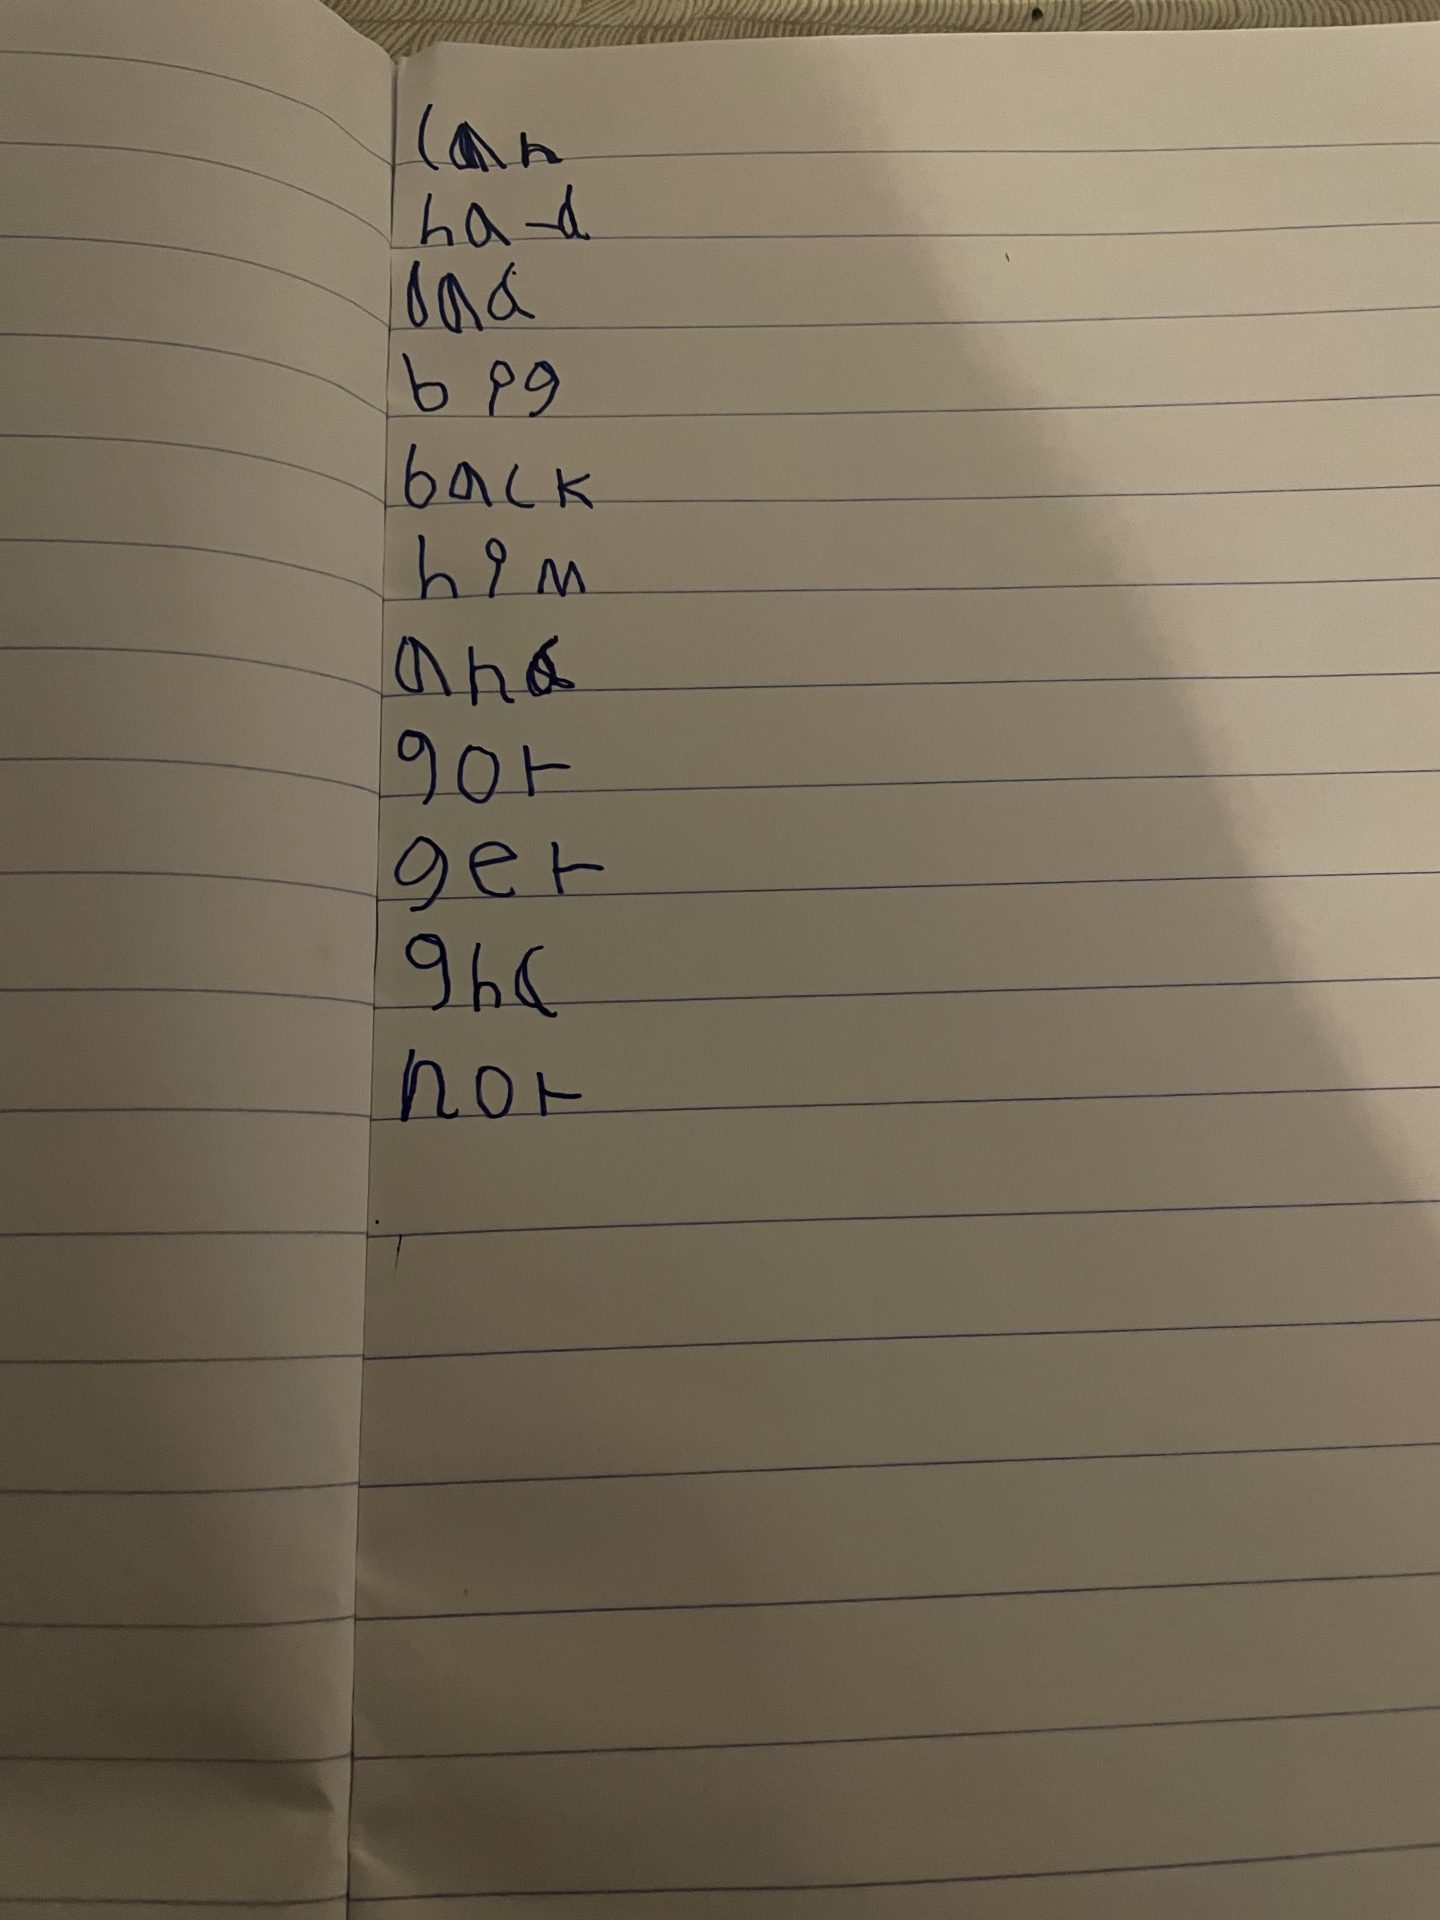 can
had
dad
big
back
him
and
got
get
ghd
not